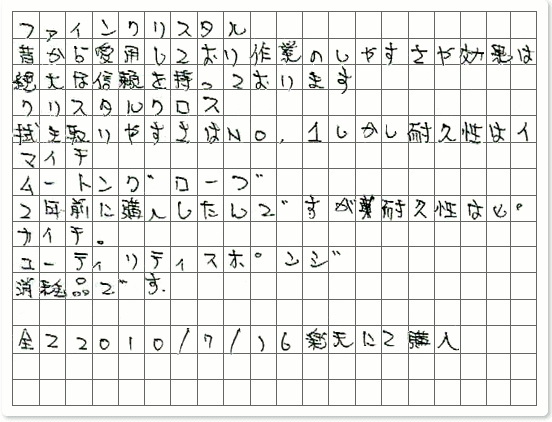 ファインクリスタル
昔から愛用しており作業のしやすさや効果は
絶大な信頼を持っております
クリスタルクロス
拭き取りやすさはNO.1しかし耐久性はイ
マイチ
ムートングローブ
2年前に購入したんですが耐久性はピ
カイチ。
ユーティリティスポンジ
消耗品です
全て2010/7/16楽天にて購入